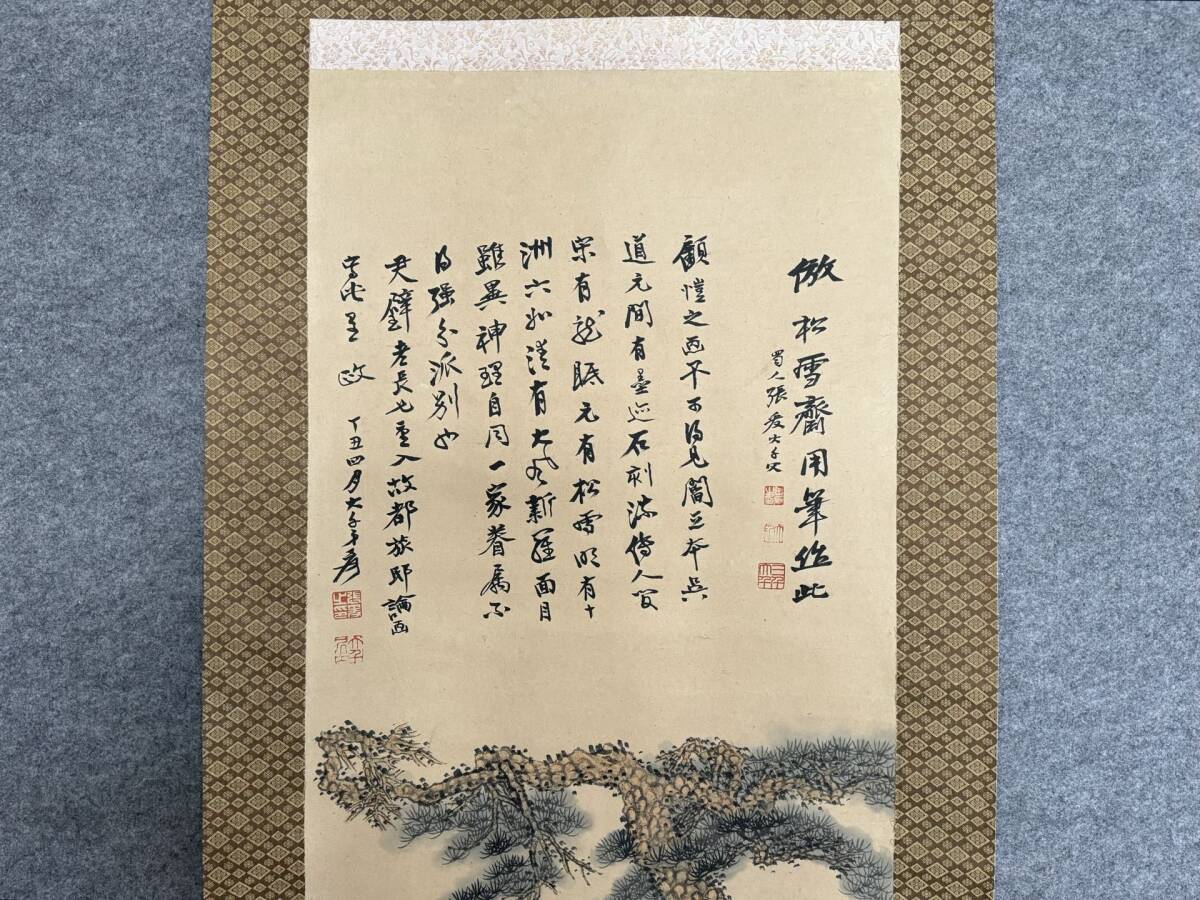 倣松雪齋用筆作此
蜀人張爰大千父
顧愷之画不可得見閻立本吳
道元間有墨迹石刻流傳人間
宋有龍眠元有松雪明有十
洲六如清有大風新羅面目
雖異神理自同一家眷屬不
得强分派別也
尹鐸老長兄重入故都旅邸論画
寫此呈政
丁丑四月大千弟爰